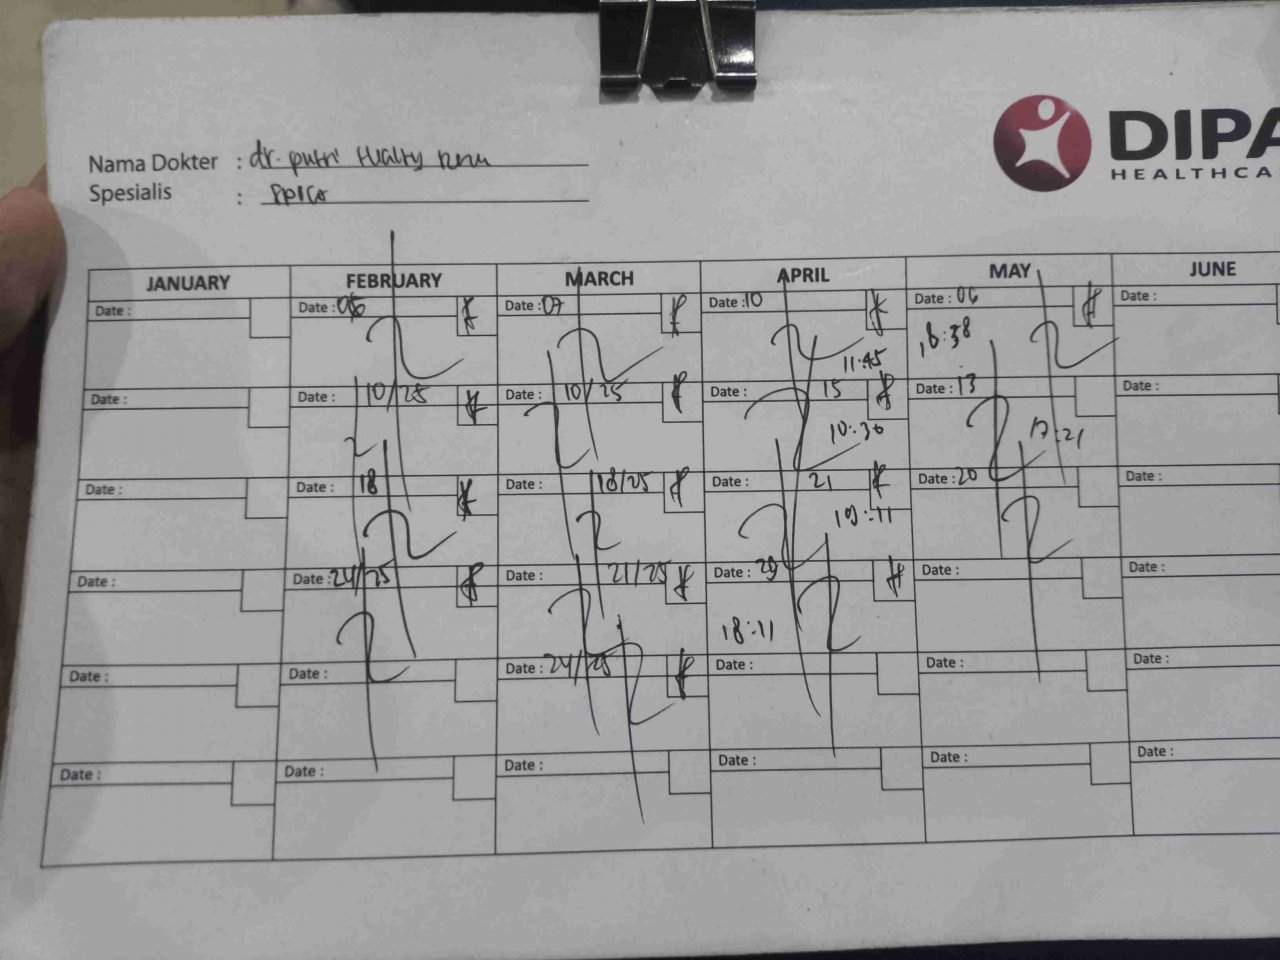 DIPA
HEALTHCA
Nama Dokter : dr. putri
Spesialis :
JANUARY FEBRUARY MARCH APRIL MAY JUNE
Date : Date : Date : 07 Date : 10 Date : 06 Date :
11:45 16:38
Date : Date : 10/25 Date : 10/25 Date : 15 Date : 13 Date :
10:30 17:21
Date : Date : 18 Date : 18/25 Date : 21 Date : 20 Date :
19:11
Date : Date : 24/25 Date : 21/25 Date : 29 Date : Date :
18:11
Date : Date : Date : 24/25 Date : Date : Date :
Date : Date : Date : Date : Date : Date :